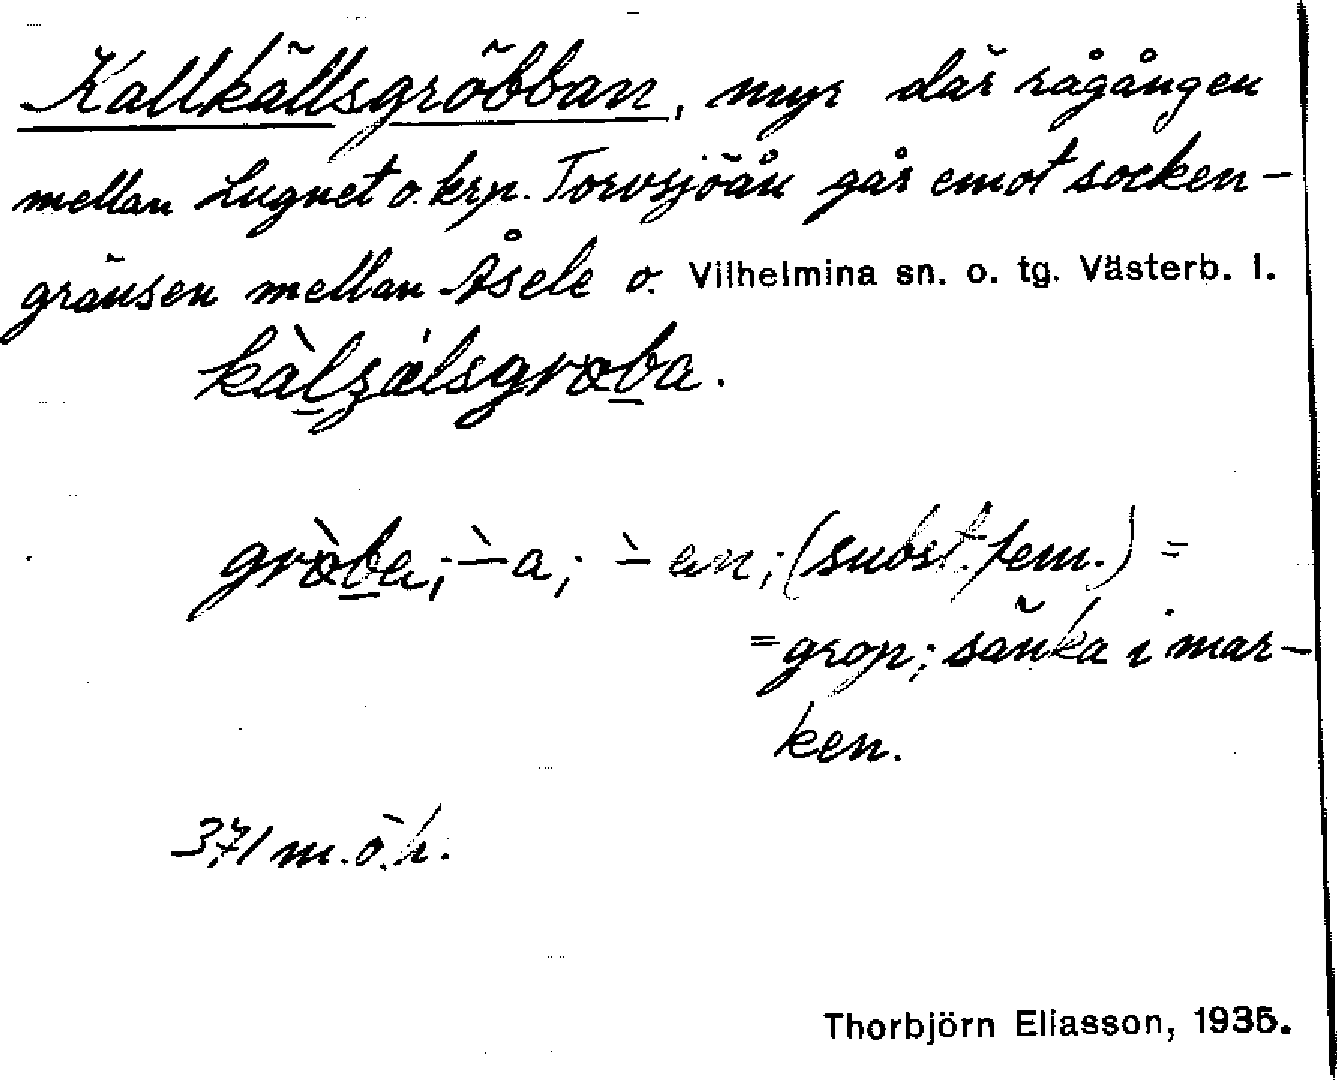 Kallkällsgröbban, myr där rågången
mellan Lugnet o. krp. Torvsjöån går emot socken-
gränsen mellan Åsele o. Vilhelmina sn. o. tg. Västerb. l.
kàlʒælsgrœba.
grœ̀ba; ̀-a; ̀-en; (subst. fem.) =
= grop; sänka i mar-
ken.
371 m.ö.h.
Thorbjörn Eliasson, 1935.